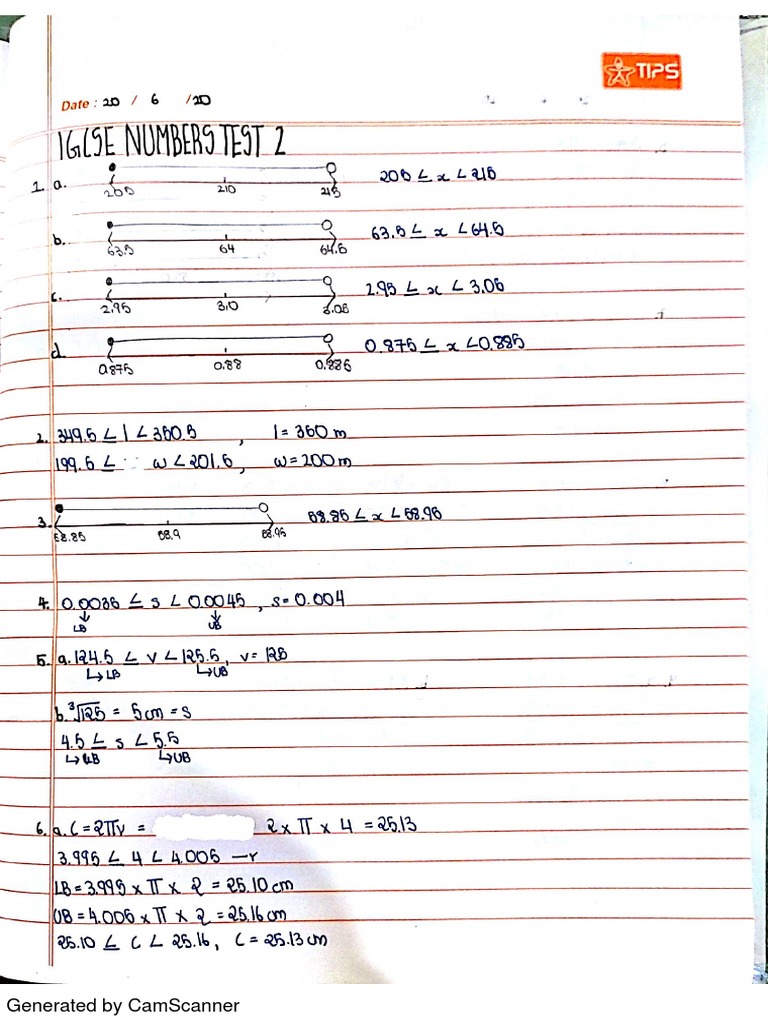 TIPS
Date : 20 / 6 /20
IGCSE NUMBERS TEST 2
1. a. 205 210 215 205 ≤ x < 215
b. 63.5 64 64.5 63.5 ≤ x < 64.5
c. 2.95 3.0 3.05 2.95 ≤ x < 3.05
d. 0.875 0.88 0.885 0.875 ≤ x < 0.885
2. 349.5 ≤ l < 350.5 , l = 350 m
199.5 ≤ w < 201.5 , w = 200 m
3. 58.85 58.9 58.95 58.85 ≤ x < 58.95
4. 0.0035 ≤ s < 0.0045 , s = 0.004
↓ LB ↓ UB
5. a. 124.5 ≤ v < 125.5, v = 125
↳ LB ↳ UB
b. ³√125 = 5cm = s
4.5 ≤ s < 5.5
↳ LB ↳ UB
6. a. C = 2πr = 2 × π × 4 = 25.13
3.995 ≤ 4 < 4.005 – r
LB = 3.995 × π × 2 = 25.10 cm
UB = 4.005 × π × 2 = 25.16 cm
25.10 ≤ C < 25.16, C = 25.13 cm
Generated by CamScanner